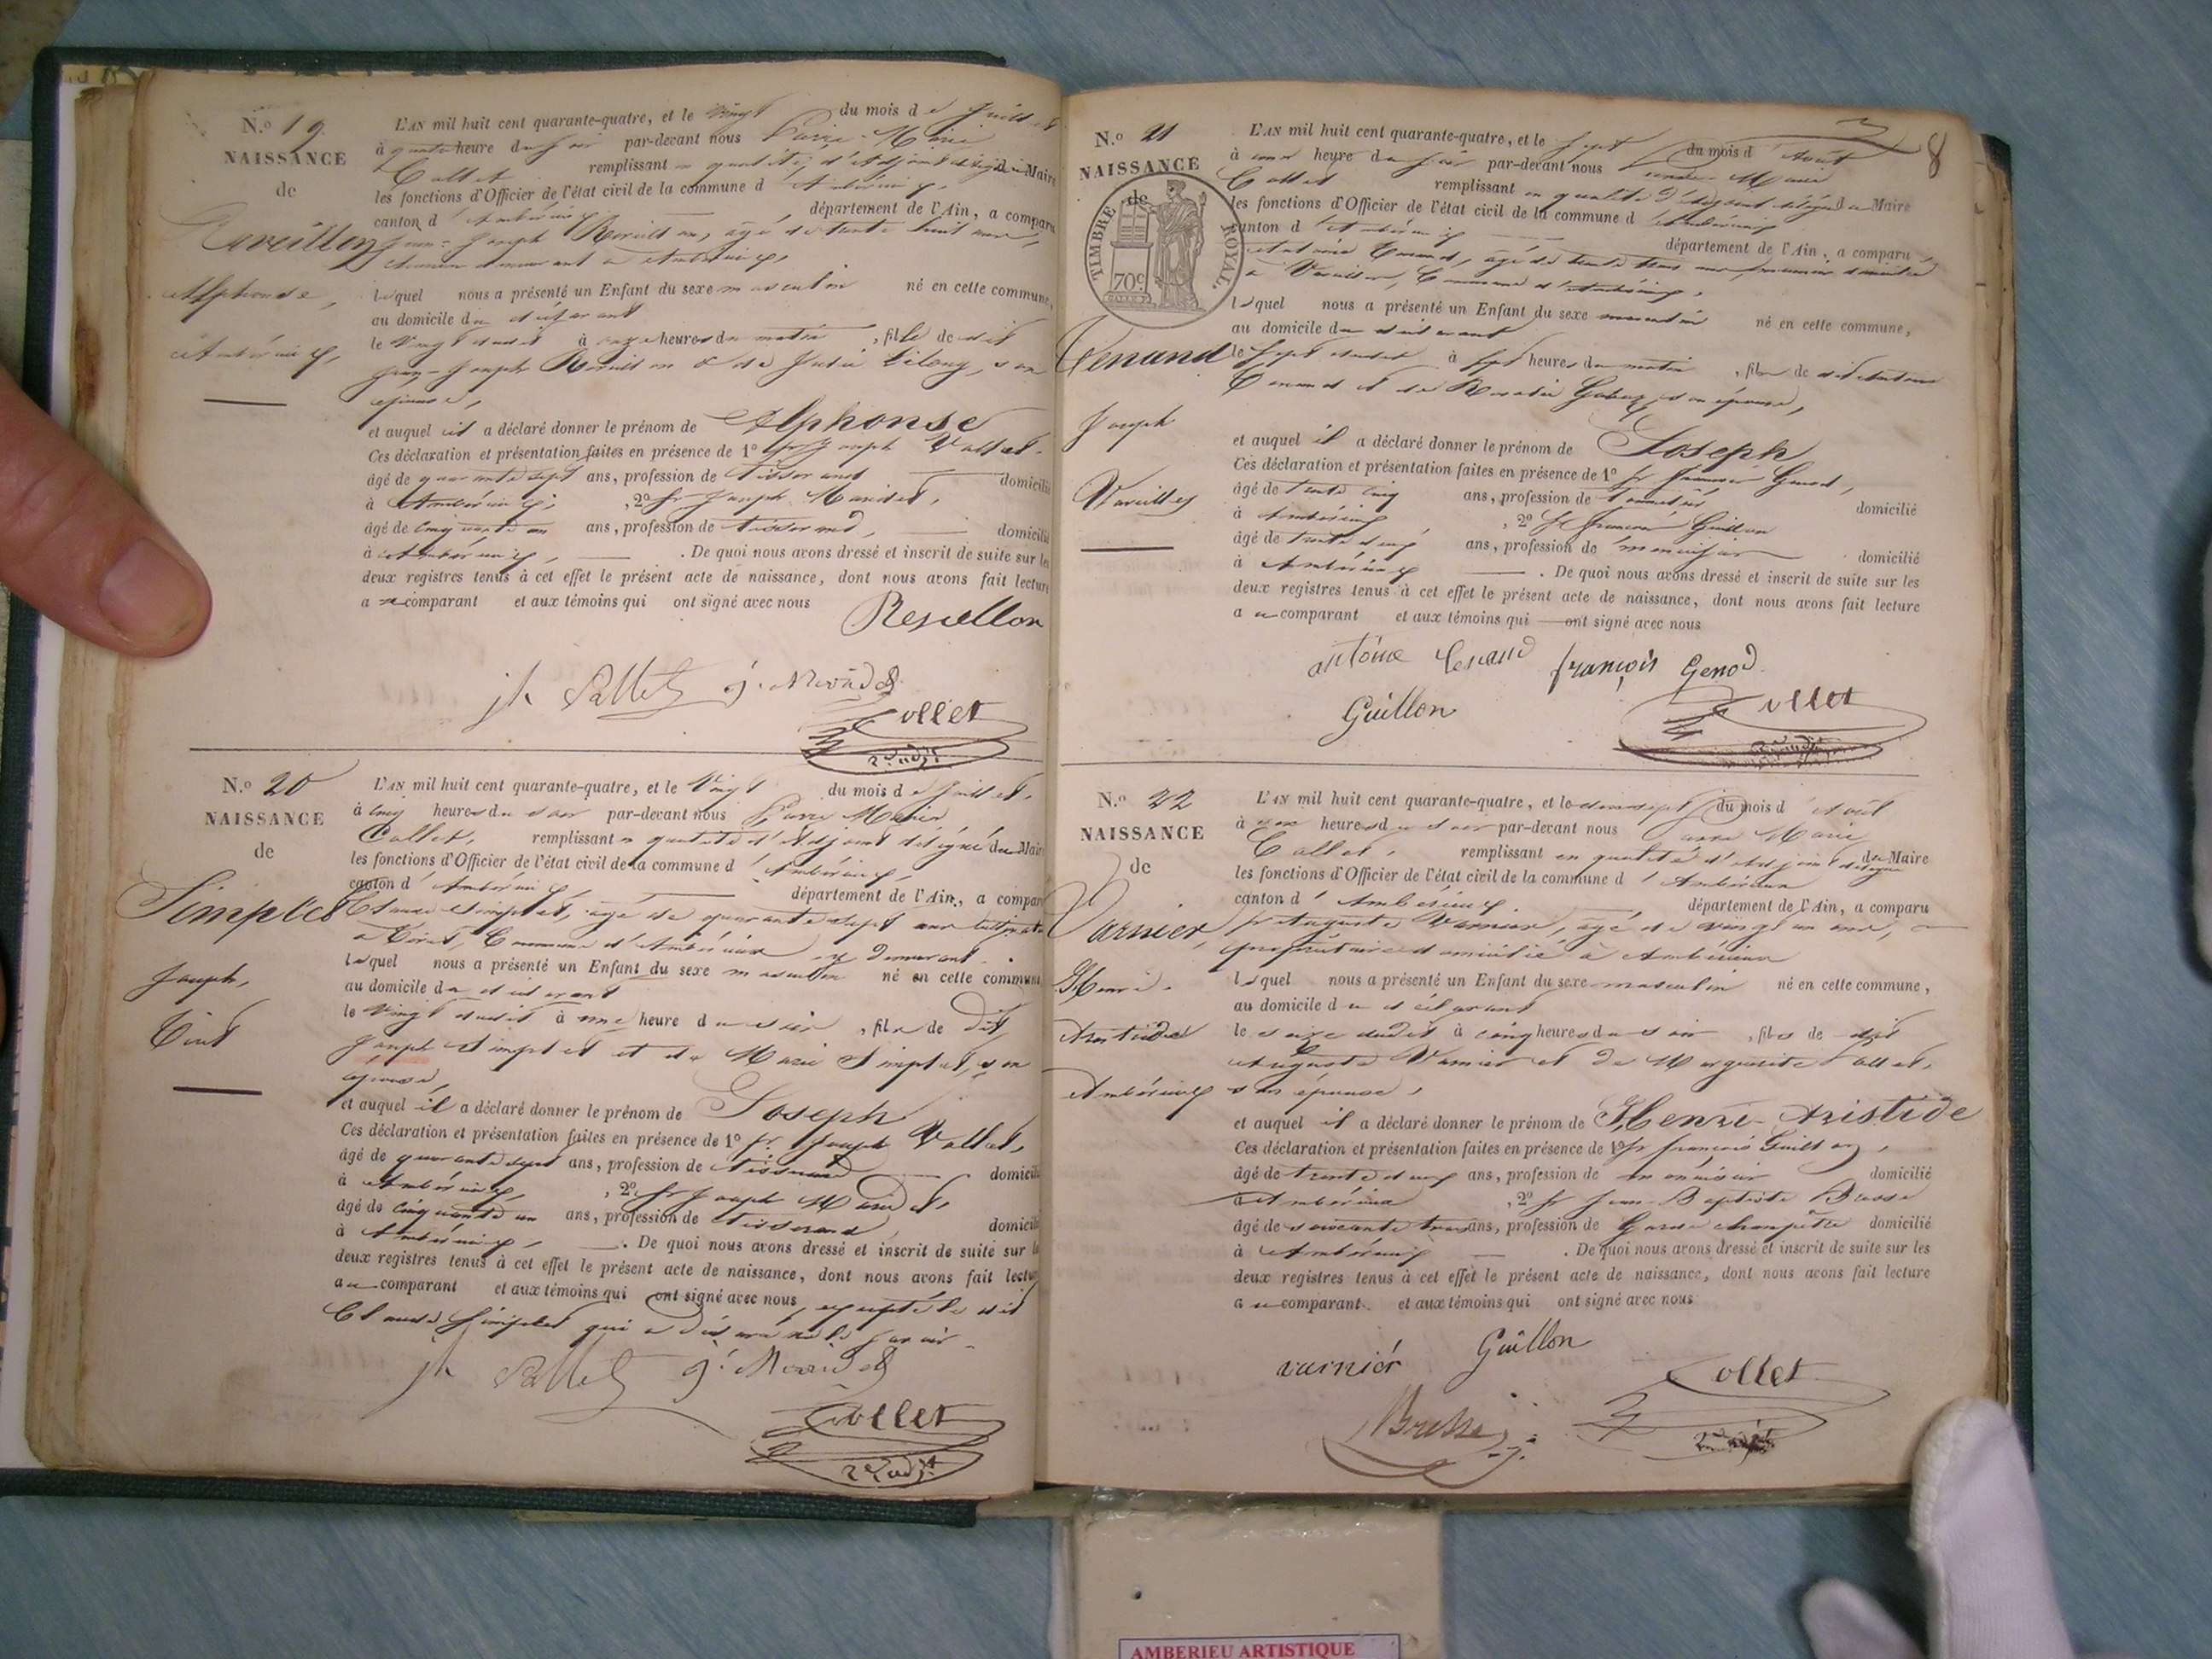 N.º 19
NAISSANCE
de
Alphonse,
Ambérieux,
L'AN mil huit cent quarante-quatre, et le vingt du mois de Juillet
à quatre heure du soir par-devant nous Pierre-Marie
Collet remplissant en qualité, d'Adjoint délégué du Maire
les fonctions d'Officier de l'état civil de la commune d'Ambérieux,
canton d'Ambérieux, département de l'Ain, a comparu
Jean-Joseph âgé de trente huit ans,
demeurant à Ambérieux,
lequel nous a présenté un Enfant du sexe masculin né en cette commune,
au domicile du déclarant
le vingt dudit à onze heures du matin, fils de dit
Jean-Joseph & de Julie son
épouse,
et auquel il a déclaré donner le prénom de Alphonse
Ces déclaration et présentation faites en présence de 1º Sr Joseph Vallet,
âgé de quarante sept ans, profession de tisserand domicilié
à Ambérieux, 2º Sr Joseph
âgé de cinquante un ans, profession de tisserand, domicilié
à Ambérieux, . De quoi nous avons dressé et inscrit de suite sur les
deux registres tenus à cet effet le présent acte de naissance, dont nous avons fait lecture
au comparant et aux témoins qui ont signé avec nous
Revellon
jh Vallet
Collet
2e adjt
N.º 20
NAISSANCE
de
Simplet
Joseph,
Tiret
L'AN mil huit cent quarante-quatre, et le Vingt du mois de Juillet,
à cinq heures du soir par-devant nous Pierre Marie
Collet, remplissant en qualité d'Adjoint délégué du Maire
les fonctions d'Officier de l'état civil de la commune d'Ambérieux,
canton d'Ambérieux, département de l'Ain, a comparu
Claude Simplet, âgé de quarante sept ans
à Tiret, Commune d'Ambérieux y demeurant.
lequel nous a présenté un Enfant du sexe masculin né en cette commune
au domicile du déclarant
le vingt dudit à une heure du soir, fils de dit
Joseph Simplet et de Marie Simplet, son
épouse,
et auquel il a déclaré donner le prénom de Joseph
Ces déclaration et présentation faites en présence de 1º Sr. Joseph Vallet,
âgé de quarante sept ans, profession de tisserand domicilié
à Ambérieux, 2º Sr Joseph
âgé de cinquante un ans, profession de tisserand, domicilié
à Ambérieux, . De quoi nous avons dressé et inscrit de suite sur les
deux registres tenus à cet effet le présent acte de naissance, dont nous avons fait lecture
au comparant et aux témoins qui ont signé avec nous, excepté le dit
Claude Simplet qui a déclaré ne le savoir.
jh Vallet
Collet
2e adjt
8
N.º 21
NAISSANCE
de
TIMBRE ROYAL.
70c
Tenand
Joseph
Vareilles
L'AN mil huit cent quarante-quatre, et le sept du mois d'Août
à heure du soir par-devant nous Pierre Marie
Collet remplissant en qualité d'Adjoint délégué du Maire
les fonctions d'Officier de l'état civil de la commune d'Ambérieux
canton d'Ambérieux département de l'Ain, a comparu
Antoine Tenand, âgé de trente trois ans
à Vareilles, Commune d'Ambérieux,
lequel nous a présenté un Enfant du sexe masculin né en cette commune,
au domicile du déclarant
le sept dudit à sept heures du matin, fils de dit Antoine
Tenand et de son épouse,
et auquel il a déclaré donner le prénom de Joseph
Ces déclaration et présentation faites en présence de 1º Sr François Genod,
âgé de trente cinq ans, profession de domicilié
à Ambérieux, 2º Sr François Guillon
âgé de trente neuf ans, profession de menuisier domicilié
à Ambérieux . De quoi nous avons dressé et inscrit de suite sur les
deux registres tenus à cet effet le présent acte de naissance, dont nous avons fait lecture
au comparant et aux témoins qui ont signé avec nous
antoine tenand françois Genod
Guillon
Collet
N.º 22
NAISSANCE
de
Varnier,
Henri.
Aristide
Ambérieux
L'AN mil huit cent quarante-quatre, et le dixsept du mois d'Août
à heures du soir par-devant nous Pierre Marie
Collet, remplissant en qualité d'Adjoint délégué du Maire
les fonctions d'Officier de l'état civil de la commune d'Ambérieux
canton d'Ambérieux. département de l'Ain, a comparu
Sr Auguste Varnier, âgé de vingt un ans,
propriétaire domicilié à Ambérieux
lequel nous a présenté un Enfant du sexe masculin né en cette commune,
au domicile du déclarant
le seize dudit à cinq heures du soir, fils de dit
Auguste Varnier et de Marguerite
son épouse,
et auquel il a déclaré donner le prénom de Henri-Aristide
Ces déclaration et présentation faites en présence de 1º Sr françois Guillon,
âgé de trente neuf ans, profession de menuisier domicilié
à Ambérieux, 2º Sr Jean Baptiste Brusse
âgé de soixante trois ans, profession de Garde champêtre domicilié
à Ambérieux . De quoi nous avons dressé et inscrit de suite sur les
deux registres tenus à cet effet le présent acte de naissance, dont nous avons fait lecture
au comparant et aux témoins qui ont signé avec nous
varnier Guillon
Collet
Brusse
AMBERIEU ARTISTIQUE